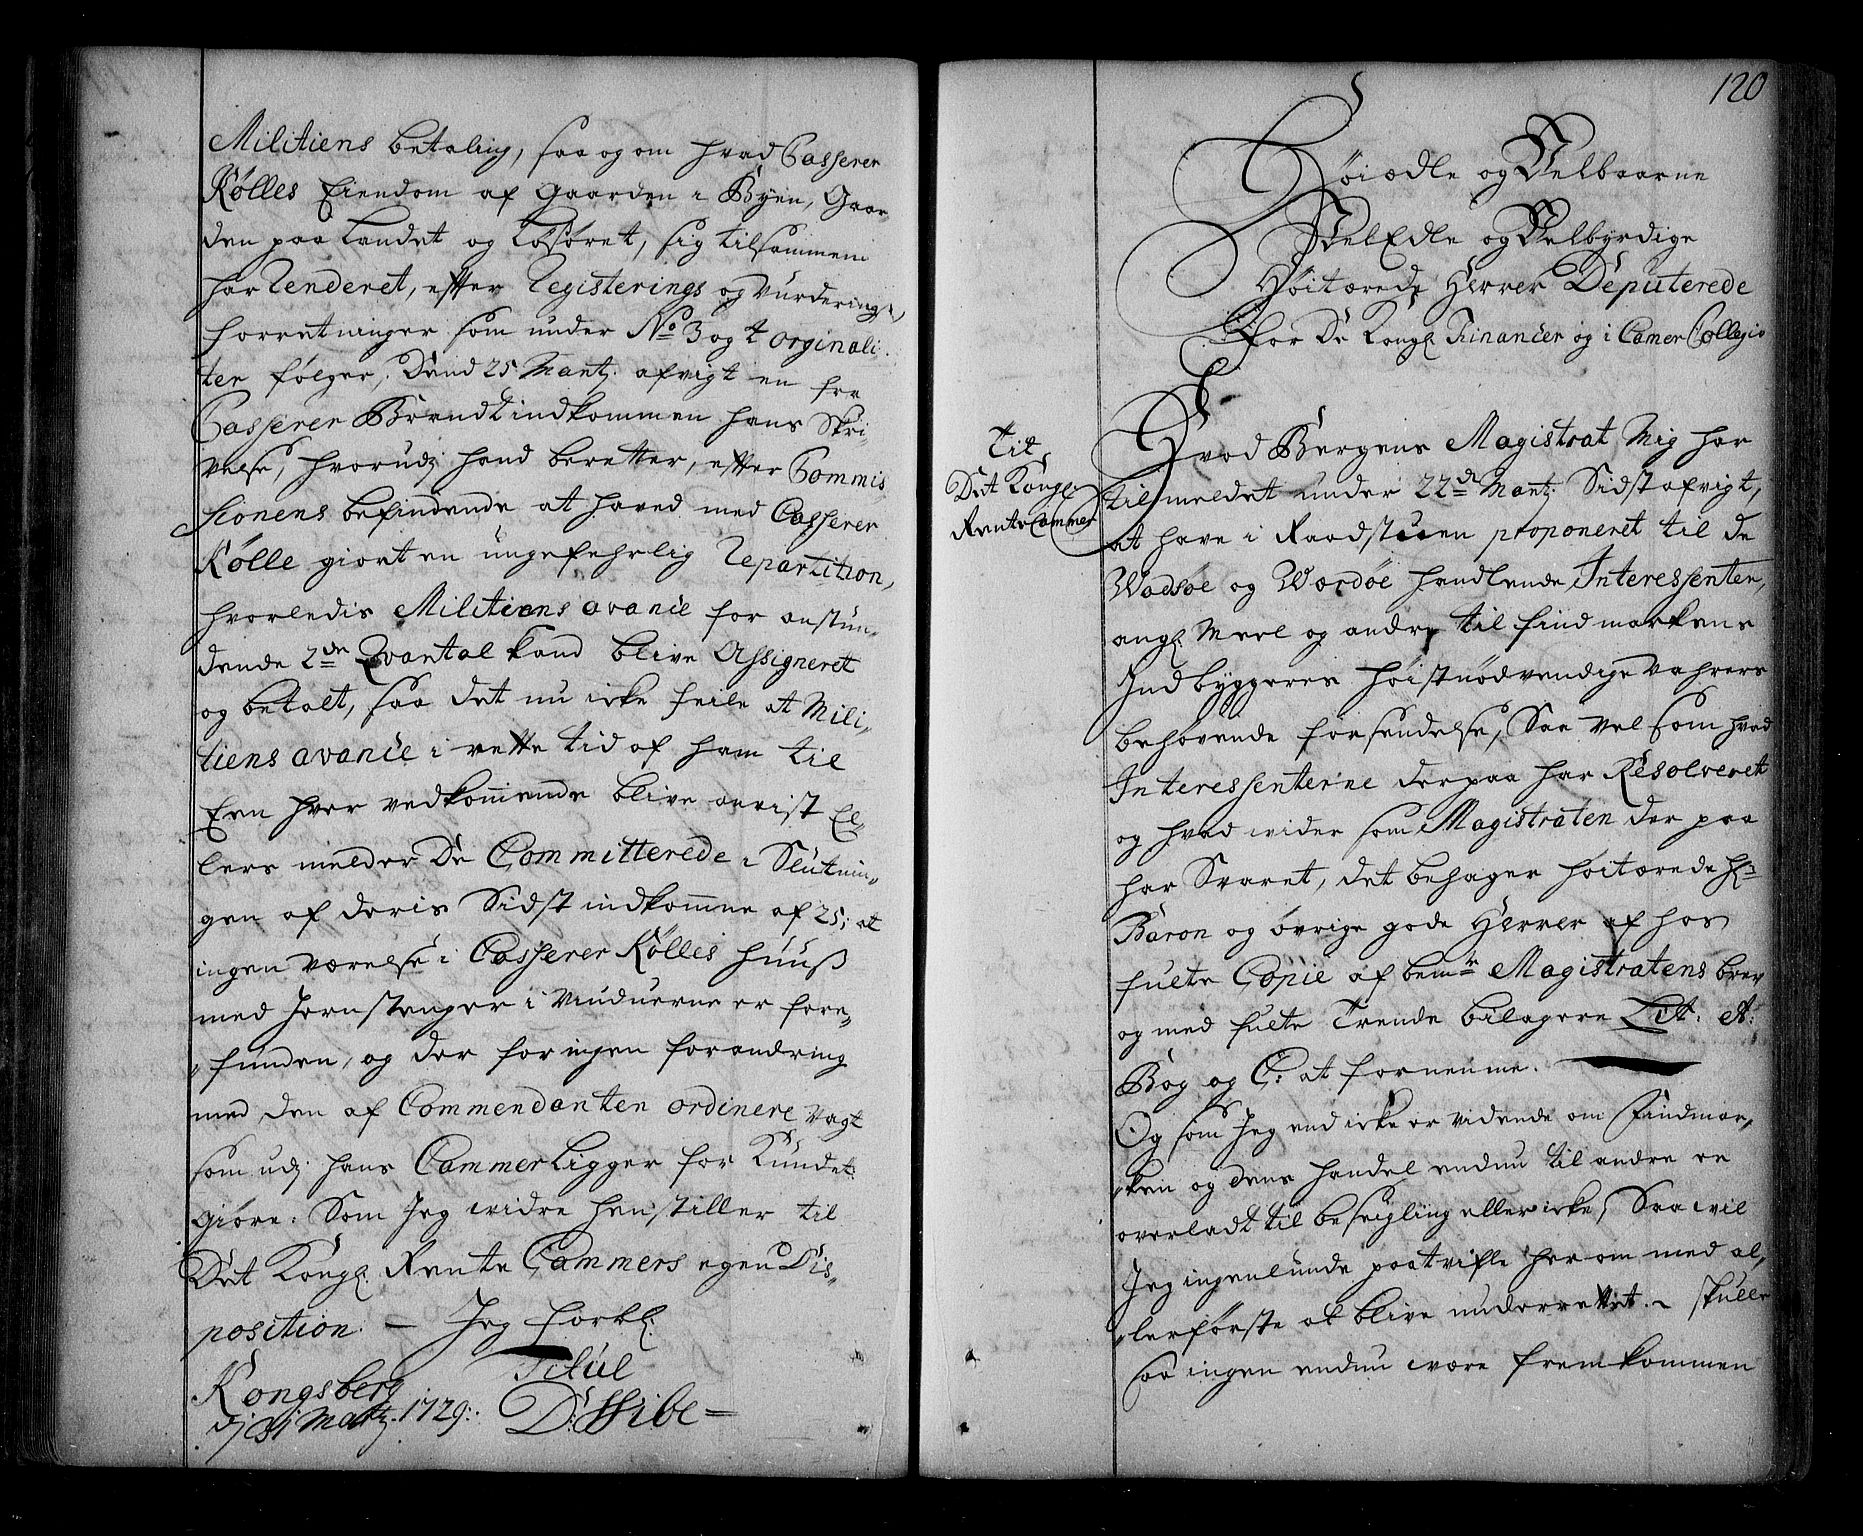 Militiens betaling, saa og om hvad Casserer
Kølles Eiendom af Gaarden i Byen, Gaar-
den paa Landet og Løsøret, sig tilsammen
har Renderet, efter Registerings og Vurderings,
forretninger som under No 3 og 4 orginali-
ter følger. Dend 25 Martz. afvigt en fra
Casserer Brandt indkommen hans Skri
velse, hvorudj hand beretter, efter Commis
sionens befindende at haved med Casserer
Kølle giort en ungefehrlig Repartition,
hvorledis Militiens avance for anstun-
dende 2de Qvartal kand blive Assigneret
og betalt, saa det nu icke feile at Mili-
tiens avance i rette tid af ham til
Een hver vedkommende blive anvist El-
lers melder De Committerede i Slutnin-
gen af deris Sidst indkomne af 25; at
ingen værelse i Casserer Kølles Huuß
med Jernstenger i Vinduerne er fore-
funden, og der for ingen forandring
med den af Commendanten ordinere Vagt
som udj hans Cammer Ligger for Kundet
giøre. Som Jeg widre henstiller til
Det Kongl. Rente Cammers egen Dis-
position. — Jeg forbl.
Titul
Kongsberg
dj 31 Martz. 1729. D: Wibe =
120
Høiædle og Velbaarne
VelEdle og Velbyrdige
Høitærede Herrer Deputerede
For De Kongl. Financer og i Camer Collegio
Til
Det Kongl.
Rente Cammer
Hvad Bergens Magistrat Mig har
tilmeldet under 22de Martz. Sidst afvigt,
at have i Raadstuen proponeret til de
Wadsøe og Wardøe handlende Interessenter,
angl. Meel og andre til Findmarkens
Indbyggeres høistnødvendige Vahrers
behøvende forsendelse, Saa vel som hvad
Interessenterne derpaa har Resolveret
og hvad wider som Magistraten der paa
har Svaret, det behager høitærede Hr.
Baron og øvrige gode Herrer af hos
fulte Copie af bemte Magistratens brev
og med fulte Trende bilagere Lit. A:
B og og C: at fornemme.
Og som Jeg end icke er vidende om Findmar-
ken og dens handel endnu til andre er
overladt til beseigling eller icke, Saa wil
Jeg ingenlunde paatvifle her om med al-
lerførste at blive underrettet. Skulle
saa ingen endnu være fremkommen